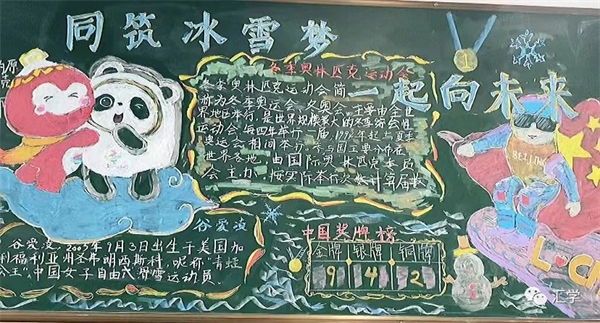 同筑冰雪梦
一起向未来
1
冬季奥林匹克运动会
冬季奥林匹克运动会简
称为冬季奥运会、冬奥会。主要由全世
界地区举行,是世界规模最大的冬季综合性
运动会,每四年举行一届,1994年起与夏季
奥运会相间举行。参与国主要分布在
世界各地,由国际奥林匹克委员
会主办,按实际举行次数计算届数
BEIJING
谷爱凌
谷爱凌,2003年9月3日出生于美国加
利福利亚州圣弗朗西斯科,昵称“青蛙
公主”,中国女子自由式滑雪运动员。
中国奖牌榜
金牌 银牌 铜牌
9 4 2
汇学